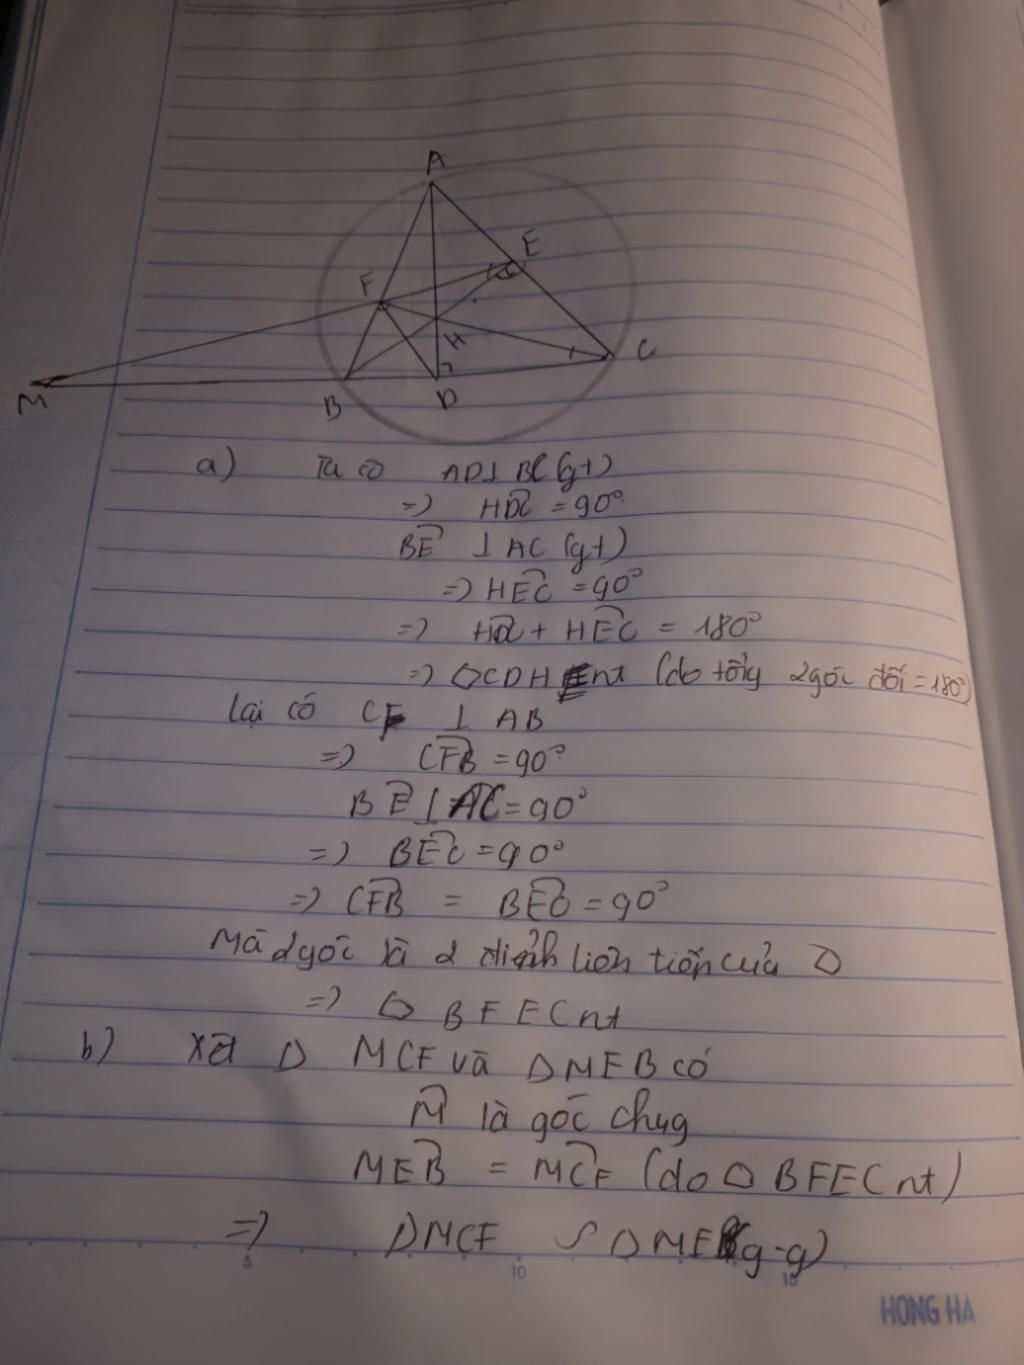 A
E
F
H
C
M
B
D
a) Ta có AD⊥BC (gt)
=> HDC = 90°
BE ⊥ AC (gt)
=> HEC = 90°
=> HDC + HEC = 180°
=> CDHE nt (do tổng 2 góc đối = 180°)
Lại có CF ⊥ AB
=> CFB = 90°
BE ⊥ AC = 90°
=> BEC = 90°
=> CFB = BEC = 90°
Mà 2 góc là 2 đỉnh liên tiếp của
=> BFEC nt
b) Xét Δ MCF và Δ MEB có
M là góc chung
MEB = MCF (do BFEC nt)
=> Δ MCF ∽ Δ MEB (g-g)
5
10
15
HONG HA